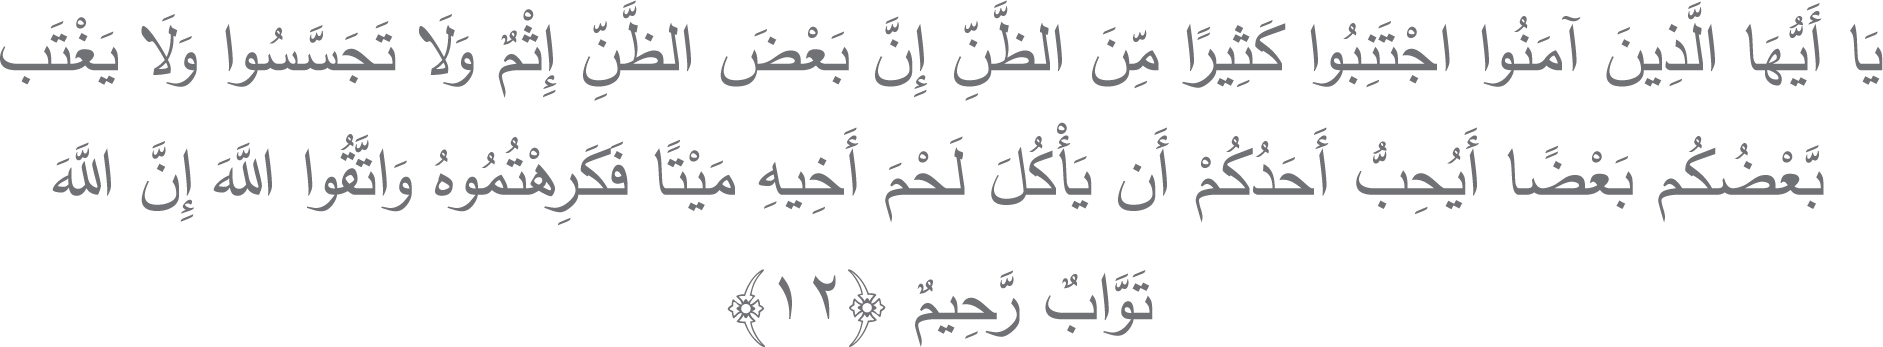 يَا أَيُّهَا الَّذِينَ آمَنُوا اجْتَنِبُوا كَثِيرًا مِّنَ الظَّنِّ إِنَّ بَعْضَ الظَّنِّ إِثْمٌ وَلَا تَجَسَّسُوا وَلَا يَغْتَب
بَّعْضُكُم بَعْضًا أَيُحِبُّ أَحَدُكُمْ أَن يَأْكُلَ لَحْمَ أَخِيهِ مَيْتًا فَكَرِهْتُمُوهُ وَاتَّقُوا اللَّهَ إِنَّ اللَّهَ
تَوَّابٌ رَّحِيمٌ ﴿١٢﴾